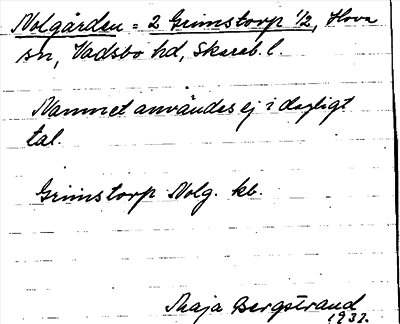 Nolgården = 2 Grimstorp 1/2, Hova
sn, Vadsbo hd, Skarab. l.
Namnet användes ej i dagligt
tal.
Grimstorp Nolg. kb.
Maja Bergstrand
1932.